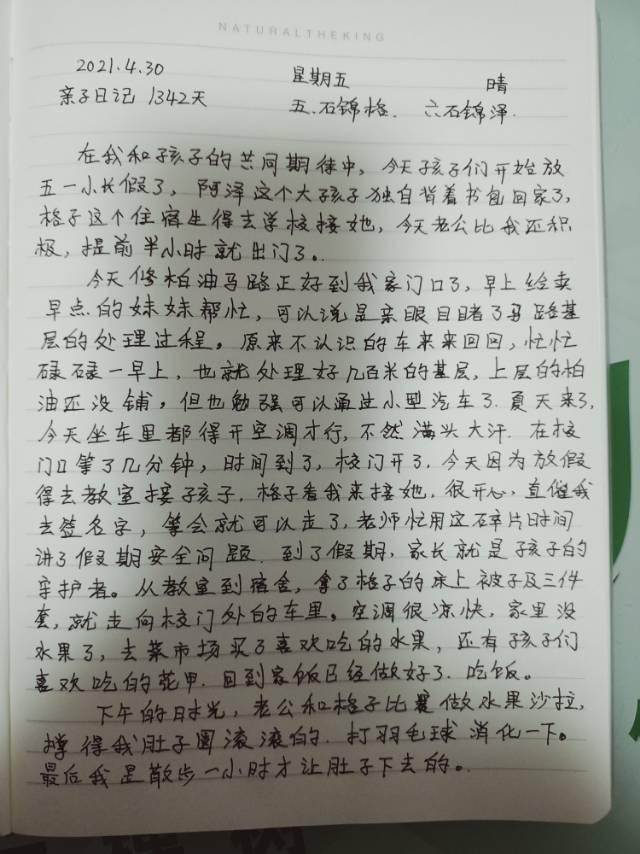 NATURALTHEKING
2021.4.30 星期五 晴
亲子日记 1342天 五.石锦格. 六石锦泽.
在我和孩子的共同期待中，今天孩子们开始放
五一小长假了，阿泽这个大孩子独自背着书包回家了，
格子这个住宿生得去学校接她，今天老公比我还积
极，提前半小时就出门了。
今天修柏油马路正好到我家门口了，早上给卖
早点的妹妹帮忙，可以说是亲眼目睹了马路基
层的处理过程。原来不认识的车来来回回，忙忙
碌碌一早上，也就处理好几百米的基层，上层的柏
油还没铺，但也勉强可以通过小型汽车了.夏天来了，
今天坐车里都得开空调才行，不然满头大汗.在校
门口等了几分钟，时间到了，校门开了.今天因为放假
得去教室接孩子，格子看我来接她，很开心，直催我
去签名字，等会就可以走了，老师忙用这碎片时间
讲了假期安全问题.到了假期，家长就是孩子的
守护者。从教室到宿舍，拿了格子的床上被子及三件
套，就走向校门外的车里。空调很凉快，家里没
水果了，去菜市场买了喜欢吃的水果，还有孩子们
喜欢吃的花甲.回到家饭已经做好了.吃饭。
下午的时光，老公和格子比赛做水果沙拉，
撑得我肚子圆滚滚的.打羽毛球消化一下。
最后我是散步一小时才让肚子下去的。